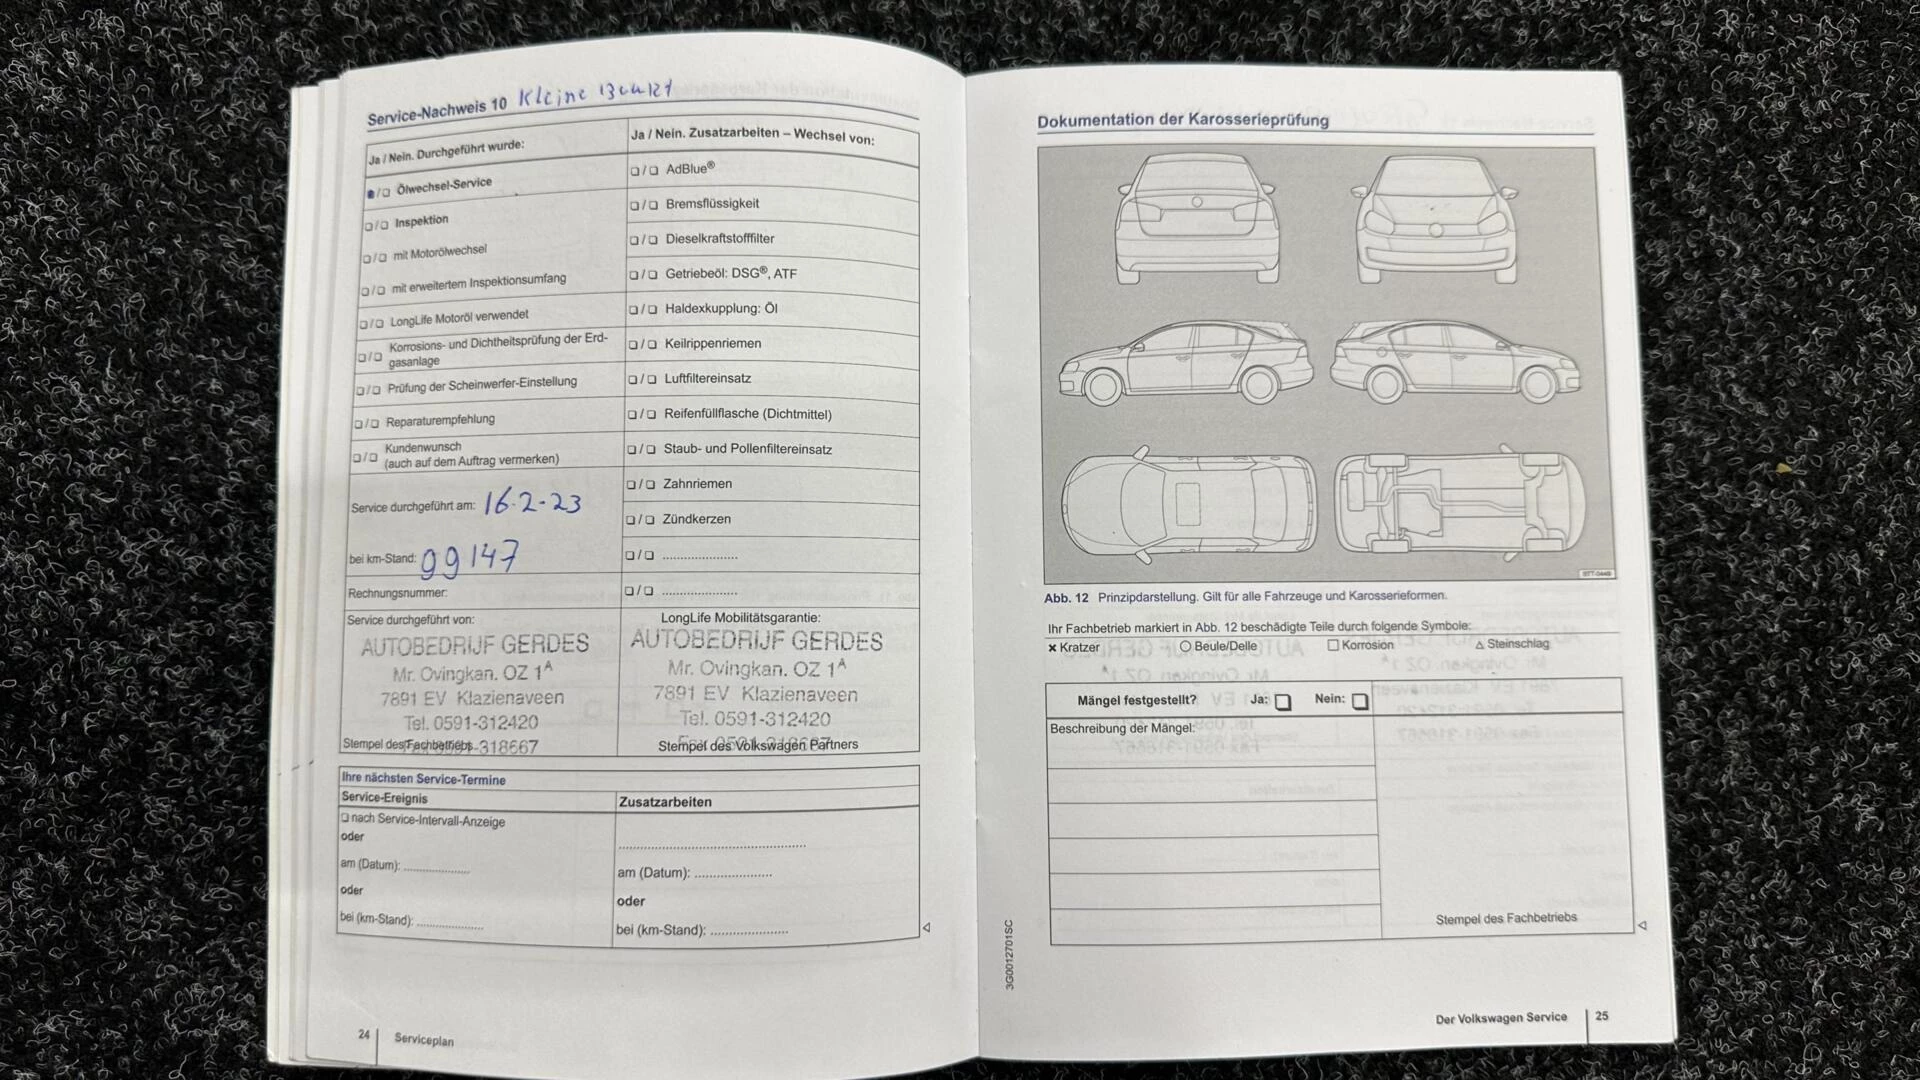 Service-Nachweis 10 Kleine Beurt
Ja / Nein. Durchgeführt wurde:
❏/❏ Ölwechsel-Service
❏/❏ Inspektion
❏/❏ mit Motorölwechsel
❏/❏ mit erweitertem Inspektionsumfang
❏/❏ LongLife Motoröl verwendet
❏/❏ Korrosions- und Dichtheitsprüfung der Erd-
gasanlage
❏/❏ Prüfung der Scheinwerfer-Einstellung
❏/❏ Reparaturempfehlung
❏/❏ Kundenwunsch
(auch auf dem Auftrag vermerken)
Service durchgeführt am: 16-2-23
bei km-Stand: 99147
Rechnungsnummer:
Ja / Nein. Zusatzarbeiten – Wechsel von:
❏/❏ AdBlue®
❏/❏ Bremsflüssigkeit
❏/❏ Dieselkraftstofffilter
❏/❏ Getriebeöl: DSG®, ATF
❏/❏ Haldexkupplung: Öl
❏/❏ Keilrippenriemen
❏/❏ Luftfiltereinsatz
❏/❏ Reifenfüllflasche (Dichtmittel)
❏/❏ Staub- und Pollenfiltereinsatz
❏/❏ Zahnriemen
❏/❏ Zündkerzen
❏/❏ .....................
❏/❏ .....................
Service durchgeführt von:
AUTOBEDRIJF GERDES
Mr. Ovingkan. OZ 1A
7891 EV Klazienaveen
Tel. 0591-312420
Fax 0591-318667
Stempel des Fachbetriebs
LongLife Mobilitätsgarantie:
AUTOBEDRIJF GERDES
Mr. Ovingkan. OZ 1A
7891 EV Klazienaveen
Tel. 0591-312420
Fax 0591-318667
Stempel des Volkswagen Partners
Ihre nächsten Service-Termine
Service-Ereignis
❏ nach Service-Intervall-Anzeige
oder
am (Datum): ..................
oder
bei (km-Stand): ..................
Zusatzarbeiten
..................................................
am (Datum): .....................
oder
bei (km-Stand): .....................
24 Serviceplan
Dokumentation der Karosserieprüfung
BTT-0449
Abb. 12 Prinzipdarstellung. Gilt für alle Fahrzeuge und Karosserieformen.
Ihr Fachbetrieb markiert in Abb. 12 beschädigte Teile durch folgende Symbole:
× Kratzer ○ Beule/Delle □ Korrosion △ Steinschlag
Mängel festgestellt? Ja: ❏ Nein: ❏
Beschreibung der Mängel:
Stempel des Fachbetriebs
3G0012701SC
Der Volkswagen Service 25